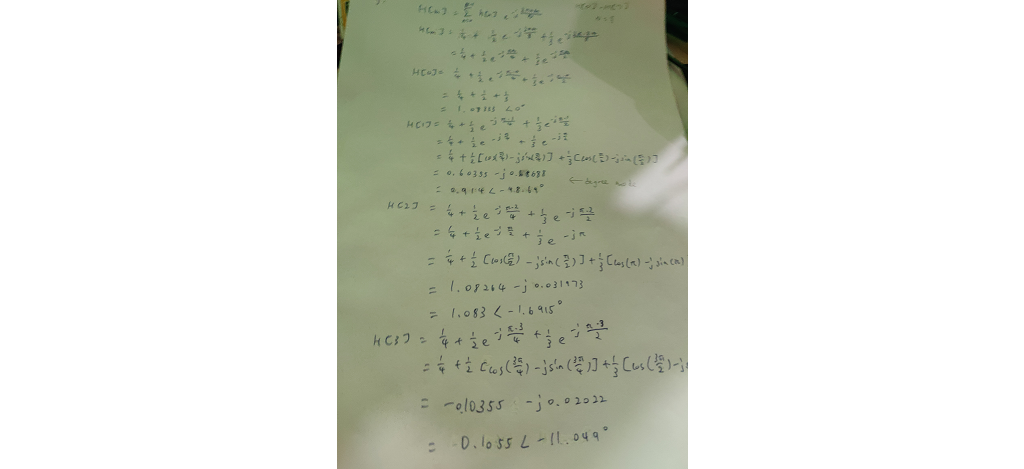 H[0] = 1/4 + 1/2 e^-j π·0/4 + 1/3 e^-j π·0/2
= 1/4 + 1/2 + 1/3
= 1.08333 ∠0°
H[1] = 1/4 + 1/2 e^-j π·1/4 + 1/3 e^-j π·1/2
= 1/4 + 1/2 e^-j π/4 + 1/3 e^-j π/2
= 1/4 + 1/2 [cos(π/4) - jsin(π/4)] + 1/3 [cos(π/2) - jsin(π/2)]
= 0.60355 - j 0.68688
= 0.914 ∠ -48.69° ← degree mode
H[2] = 1/4 + 1/2 e^-j π·2/4 + 1/3 e^-j π·2/2
= 1/4 + 1/2 e^-j π/2 + 1/3 e^-jπ
= 1/4 + 1/2 [cos(π/2) - jsin(π/2)] + 1/3 [cos(π) - jsin(π)
= 1.08264 - j 0.031973
= 1.083 ∠ -1.6915°
H[3] = 1/4 + 1/2 e^-j π·3/4 + 1/3 e^-j π·3/2
= 1/4 + 1/2 [cos(3π/4) - jsin(3π/4)] + 1/3 [cos(3π/2) - j
= -0.10355 - j 0.02022
= 0.1055 ∠ -11.049°